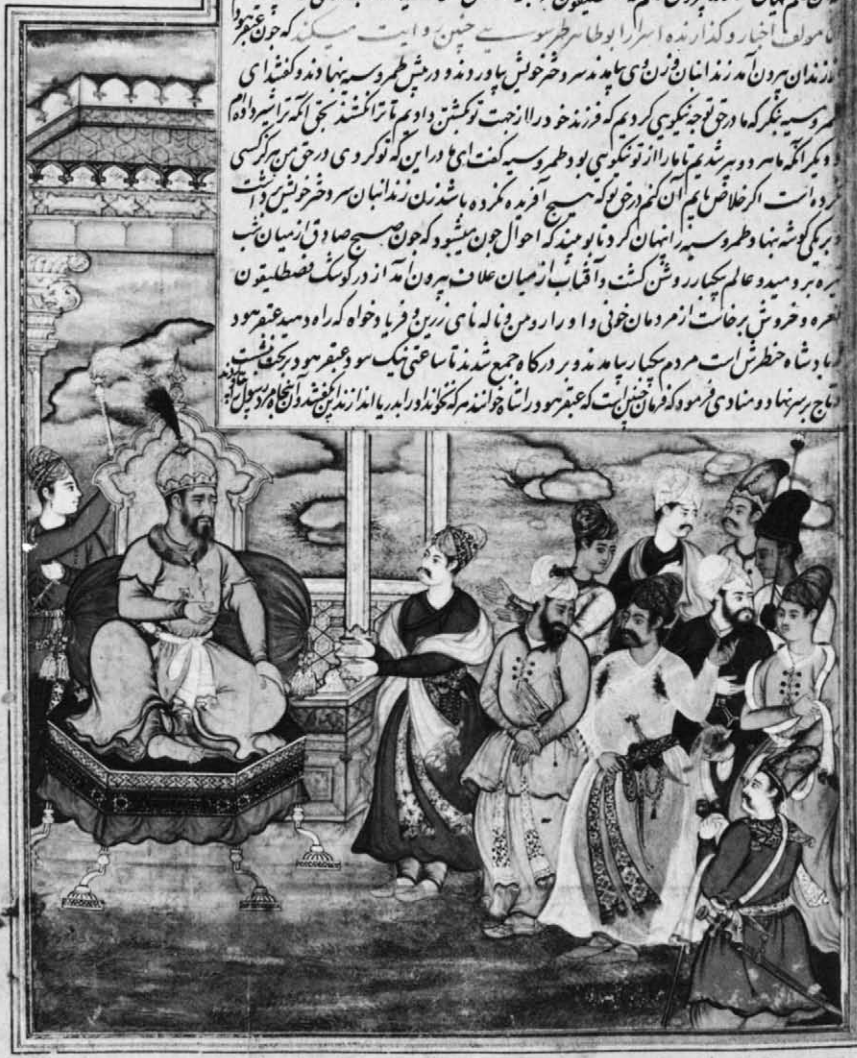 مولف اخبار و گذارنده اسرار ابوطاهر طرسوسی چنین روایت میکند که چون عنقرهود
از زندان بیرون آمد زندانبان و زن وی بیامدند سر دختر خویش بیاوردند و در پیش طمروسیه بنهادند و گفتند ای
طمروسیه بنگر که ما در حق تو چه نیکویی کردیم که فرزند خود را از جهت تو بکشتن دادیم تا ترا نکشند بحق آنکه ترا شیر دادم
و دیگر آنکه ما هر دو پیر شدیم تا ما را از تو نیکویی بود طمروسیه گفت ای مادر این که تو کردی در حق من هرگز کسی
نکرده است اگر خلاص یابم آن کنم در حق تو که هیچ آفریده نکرده باشد زن زندانبان سر دختر خویش برداشت
و بر یکی گوشه بنهاد و طمروسیه را پنهان کرد تا بویند که احوال چون میشود که چون صبح صادق از میان شب
تیره بردمید و عالم یکبار روشن گشت و آفتاب از میان غلاف بیرون آمد از در کوشک فصطلیقون
نعره و خروش برخاست از مردمان خونی و او را رومن و ناله نای زرین و فریاد خواه که راه دهید عنقرهود
پادشاه خنطرش است مردم یکبار بیامدند و بر درگاه جمع شدند تا ساعتی نیک بود عنقرهود بر تخت نشست
تاج بر سر نهاد و منادی فرمود که فرمان چنین است که عنقرهود را شاه خوانند هر که نخواند او را بدریا اندازند